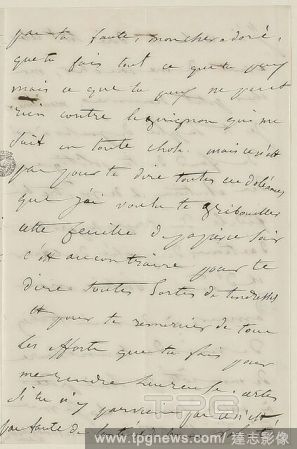 par ta faute, mon cher adoré,
que tu fais tout ce que tu peux
mais ce que tu peux ne peut
rien contre le guignon qui me
suit en toute chose mais ce n'est
pas pour te dire toutes ces doléances
que j'ai voulu te gribouiller
cette feuille de papier ce soir
c'est au contraire pour te
dire toutes sortes de tendresses
et pour te remercier de tous
les efforts que tu fais pour
me rendre heureuse, certes
si tu n'y parviens pas c'est
pas faute de
TPG
www.tpgnews.com/達志影像